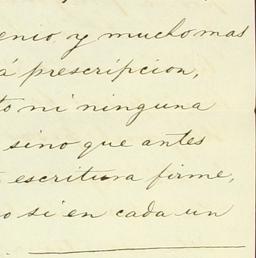 enio y mucho mas
á prescripcion,
to ni ninguna
sino que antes
escritura firme,
o si en cada un